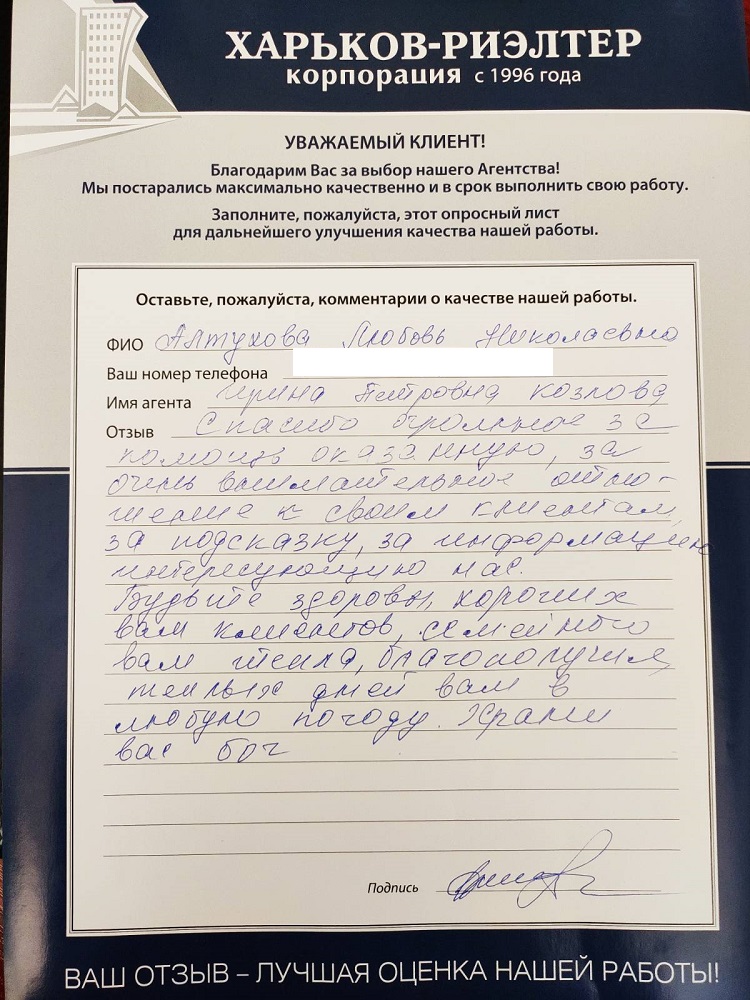 ХАРЬКОВ-РИЭЛТЕР
корпорация с 1996 года
УВАЖАЕМЫЙ КЛИЕНТ!
Благодарим Вас за выбор нашего Агентства!
Мы постарались максимально качественно и в срок выполнить свою работу.
Заполните, пожалуйста, этот опросный лист
для дальнейшего улучшения качества нашей работы.
Оставьте, пожалуйста, комментарии о качестве нашей работы.
ФИО Алтухова Любовь Николаевна
Ваш номер телефона
Имя агента Ирина Петровна Козлова
Отзыв Спасибо огромное за
помощь оказанную, за
очень внимательное отно-
шение к своим клиентам,
за подсказку, за информацию
интересующию нас.
Будьте здоровы, хороших
вам клиентов, семейного
вам тепла, благополучия,
теплых дней вам в
любую погоду. Храни
вас бог
Подпись
ВАШ ОТЗЫВ – ЛУЧШАЯ ОЦЕНКА НАШЕЙ РАБОТЫ!